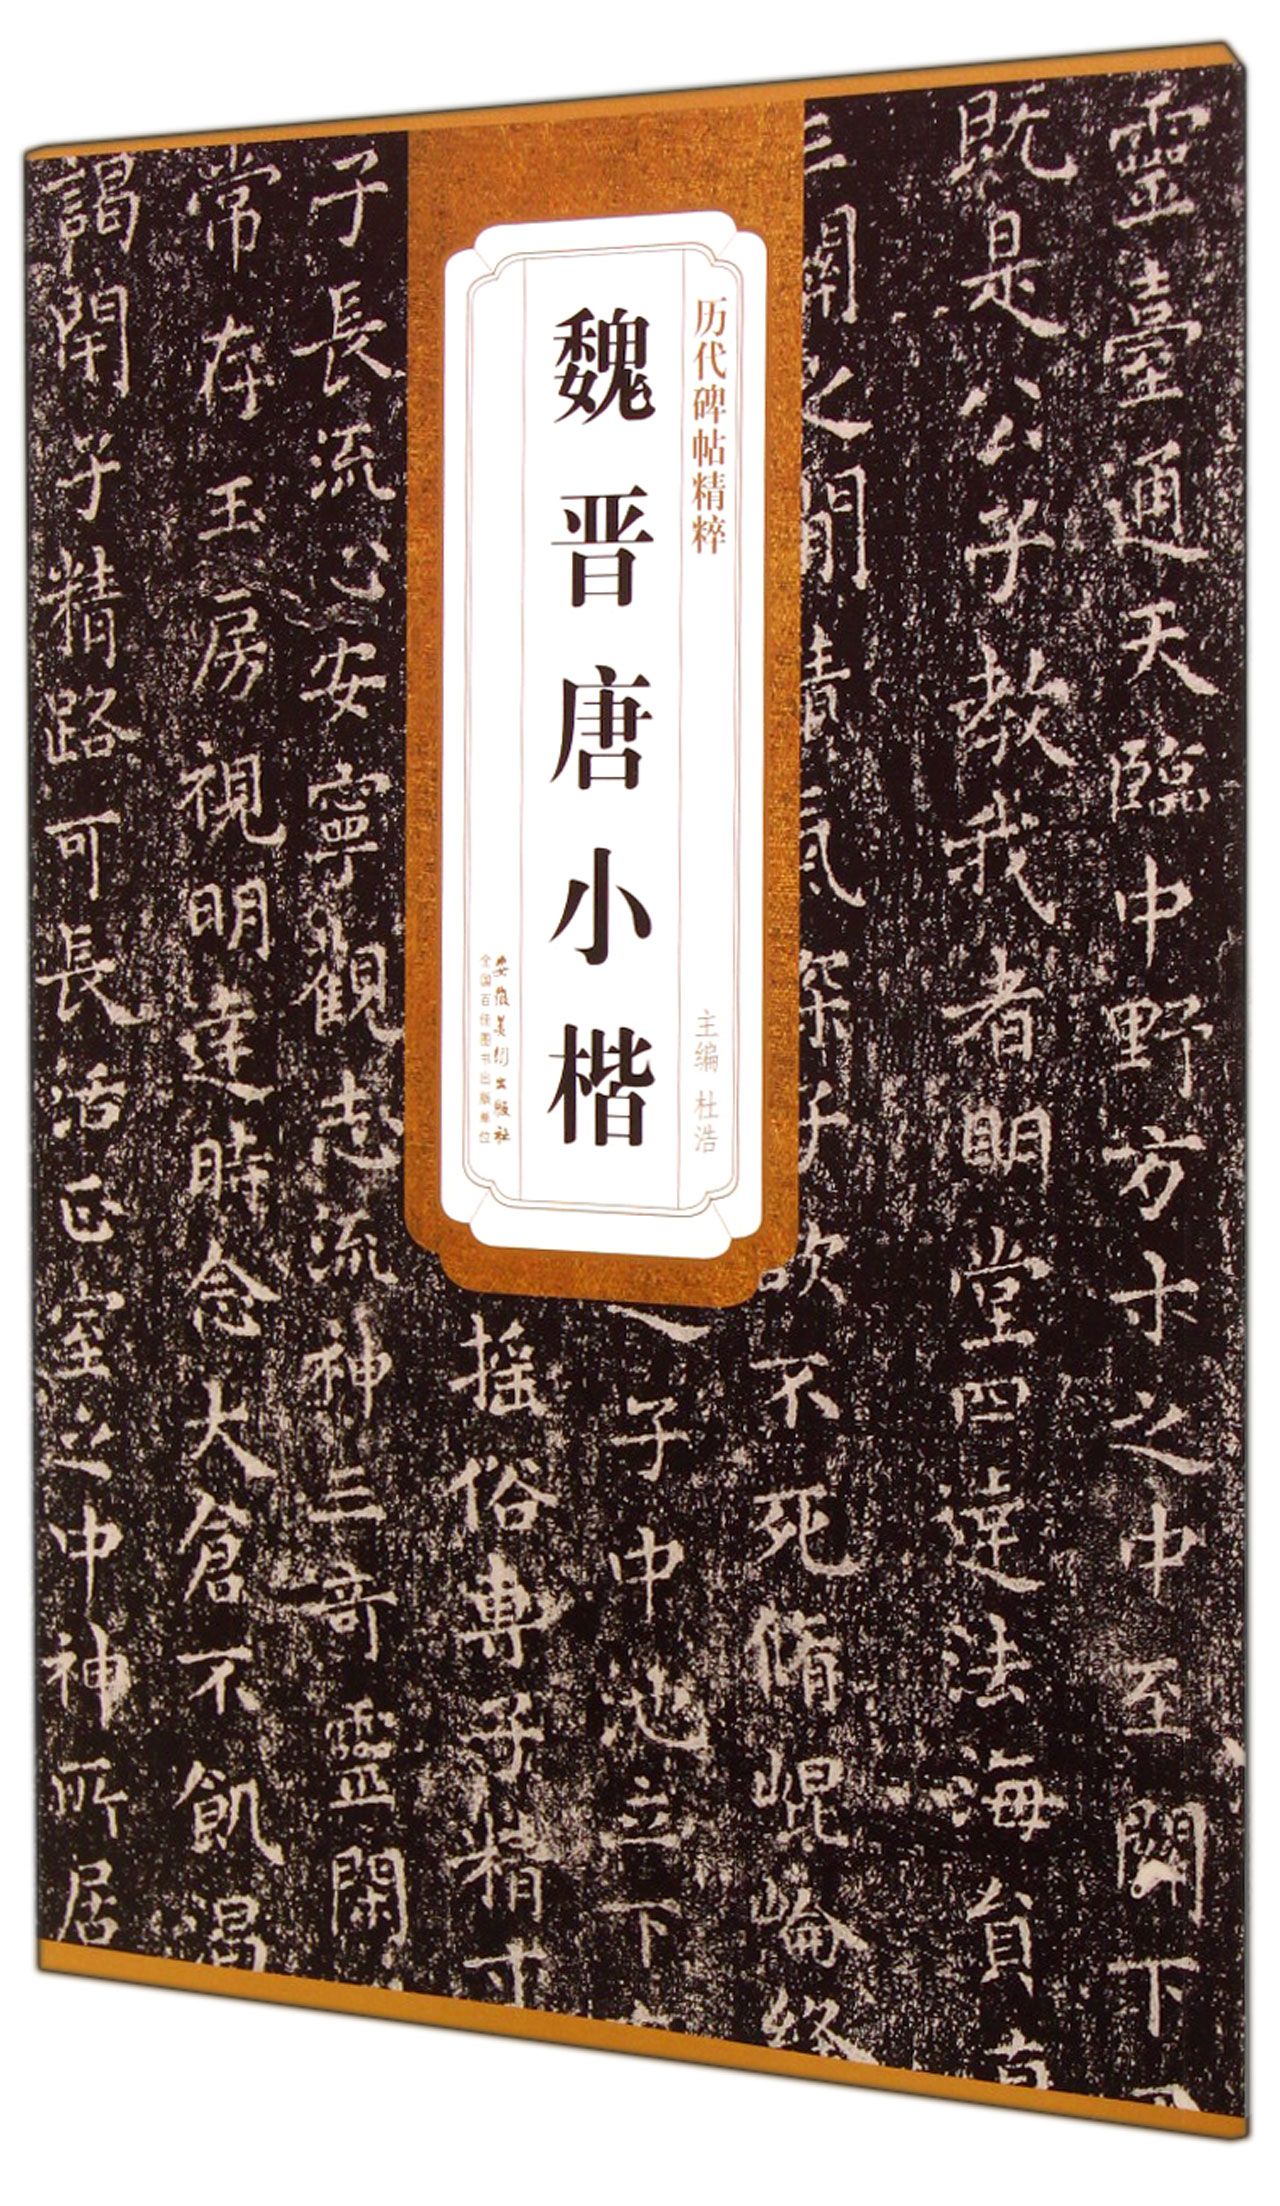 历代碑帖精粹
主编 杜浩
魏晋唐小楷
安徽美术出版社
全国百佳图书出版单位
靈臺通天臨中野方寸之中至關下
既是公子教我者明堂四達法海員真
三關之間精氣深子欲不死脩崐崘絳
之子中池立下
摇俗專子精寸
子長流心安寧觀志流神三奇靈閑
常存玉房視明達時念大倉不飢渴
謁閉子精路可長活正室之中神所居